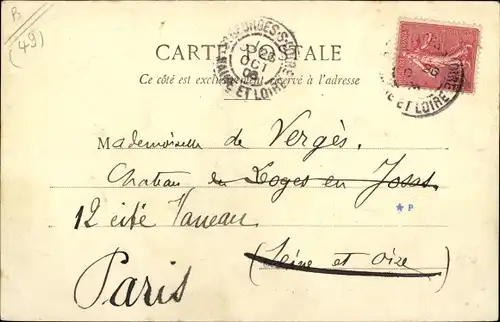 B
(49)
CARTE POSTALE
Ce côté est exclusivement réservé à l'adresse
ST GEORGES-SUR-LOIRE
26
OCT
MAINE ET LOIRE
LOIRE
26
ET LOIRE
Mademoiselle de Vergès.
Chateau des Loges en Josas
12 cité Vaneau
★ P
(Seine et Oise)
Paris